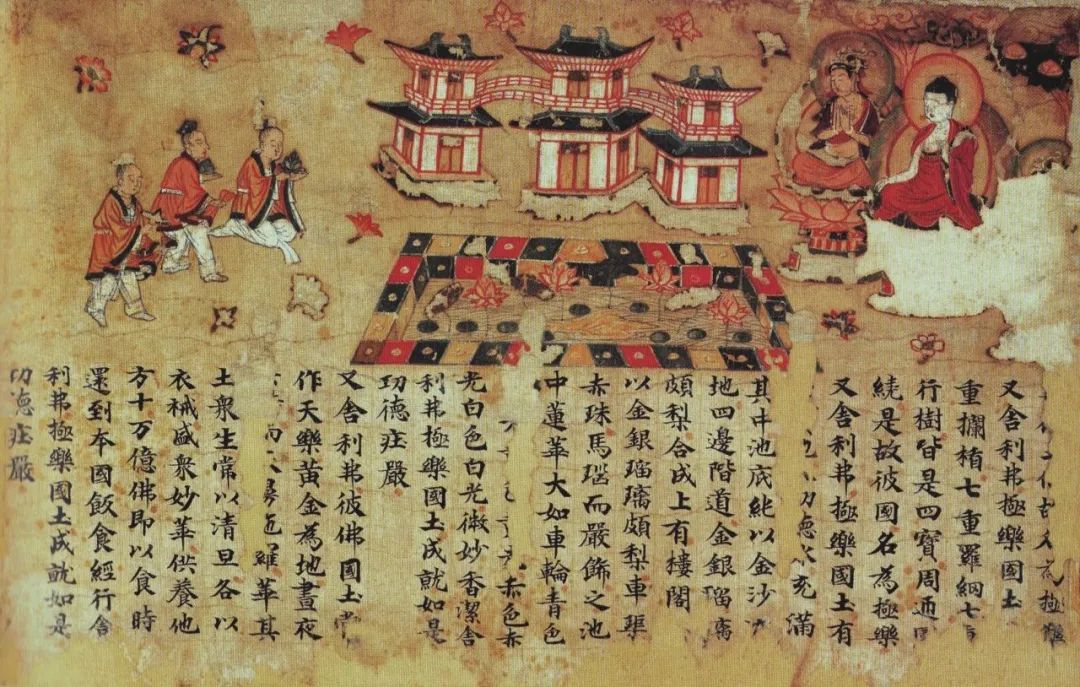 極樂
又舍利弗極樂國土
重攔楯七重羅網七
行樹皆是四寶周
繞是故彼國名為極樂
又舍利弗極樂國土有
功德水充滿
其中池底純以金沙
地四邊階道金銀瑠璃
頗梨合成上有樓閣
以金銀瑠璃頗梨車渠
赤珠馬瑙而嚴飾之池
中蓮華大如車輪青色
赤色赤
光白色白光微妙香潔舍
利弗極樂國土成就如是
功德庄嚴
又舍利弗彼佛國土常
作天樂黃金為地晝夜
而天曼陀羅華其
土眾生常以清旦各以
衣裓盛眾妙華供養他
方十万億佛即以食時
還到本國飯食經行舍
利弗極樂國土成就如是
功德庄嚴